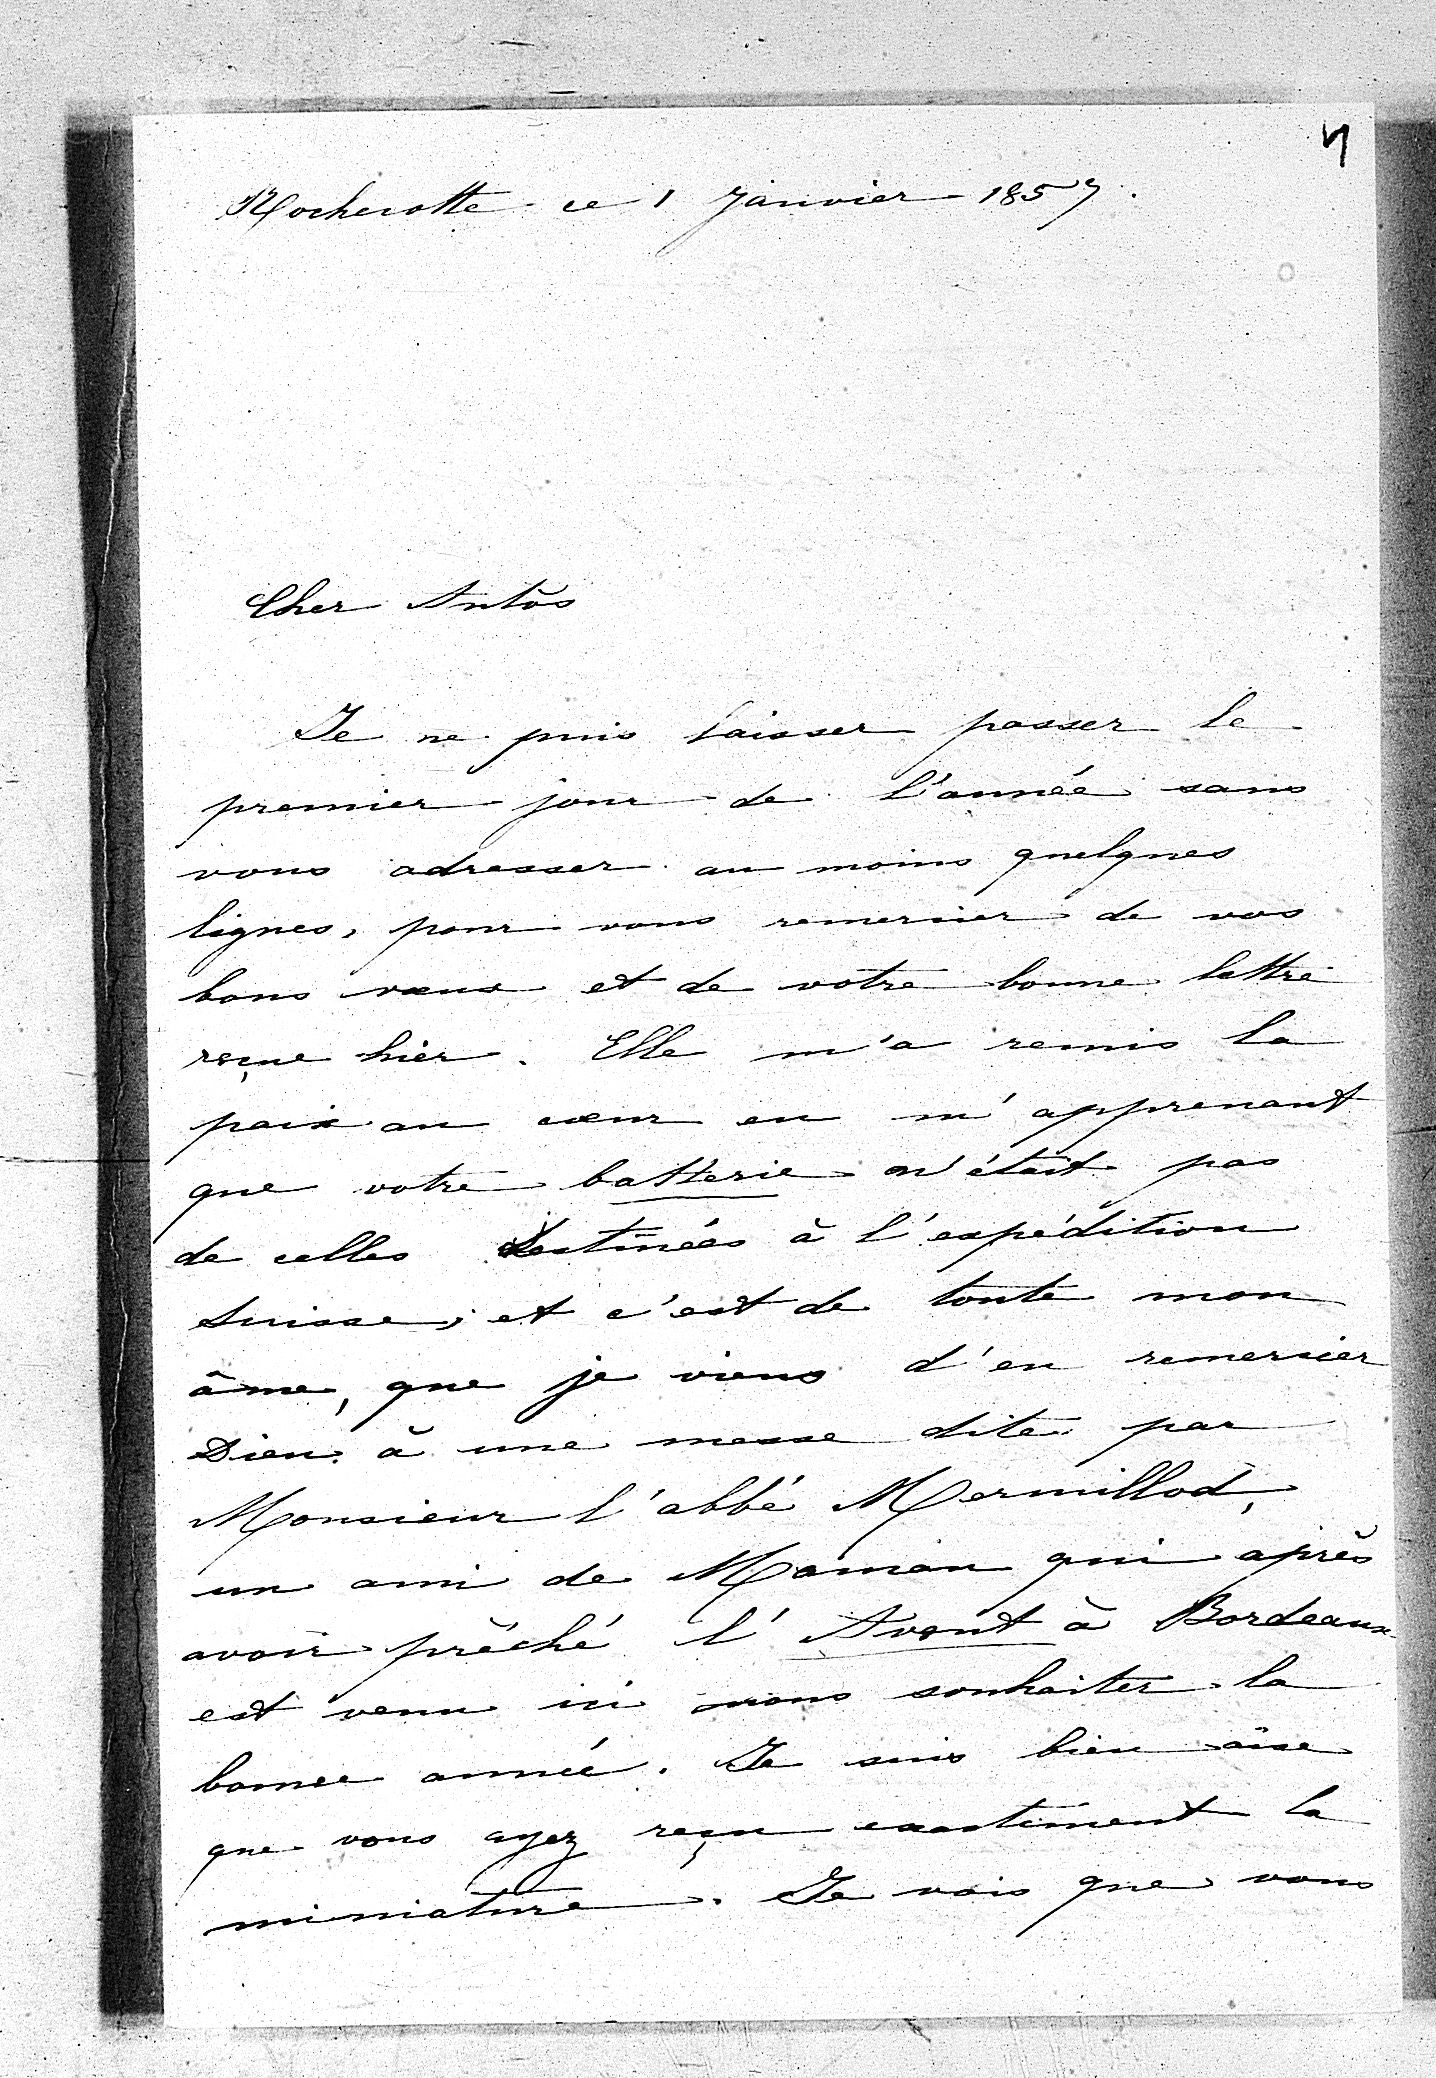 4
Rochecotte ce 1 Janvier 1857.
Cher Antòs
Je ne puis laisser passer le
premier jour de l'année sans
vous adresser au moins quelques
lignes, pour vous remercier de vos
bons vœux et de votre bonne lettre
reçue hier. Elle m'a remis la
paix au cœur en m'apprenant
que votre batterie n'était pas
de celles destinées à l'expédition
Suisse; et c'est de toute mon
âme, que je viens d'en remercier
Dieu à une messe dite par
Monsieur l'abbé Mermillod,
un ami de Maman qui après
avoir prêché l'Avent à Bordeaux
est venu ici nous souhaiter la
bonne année. Je suis bien aise
que vous ayez reçu exactement la
miniature. Je vois que vous